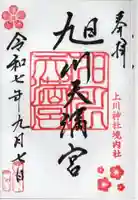 奉拝
上川神社境内社
旭川天満宮
令和七年九月七日